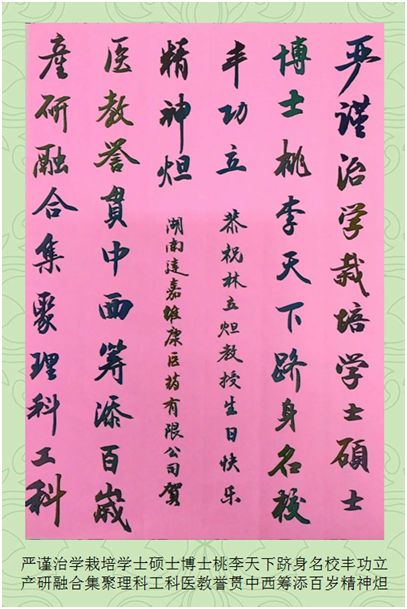 严谨治学栽培学士碩士
博士桃李天下跻身名校
丰功立
產研融合集聚理科工科
医教誉貫中西筹添百歲
精神炟
恭祝林立炟教授生日快乐
湖南達嘉维康医药有限公司贺
严谨治学栽培学士硕士博士桃李天下跻身名校丰功立
产研融合集聚理科工科医教誉贯中西筹添百岁精神炟